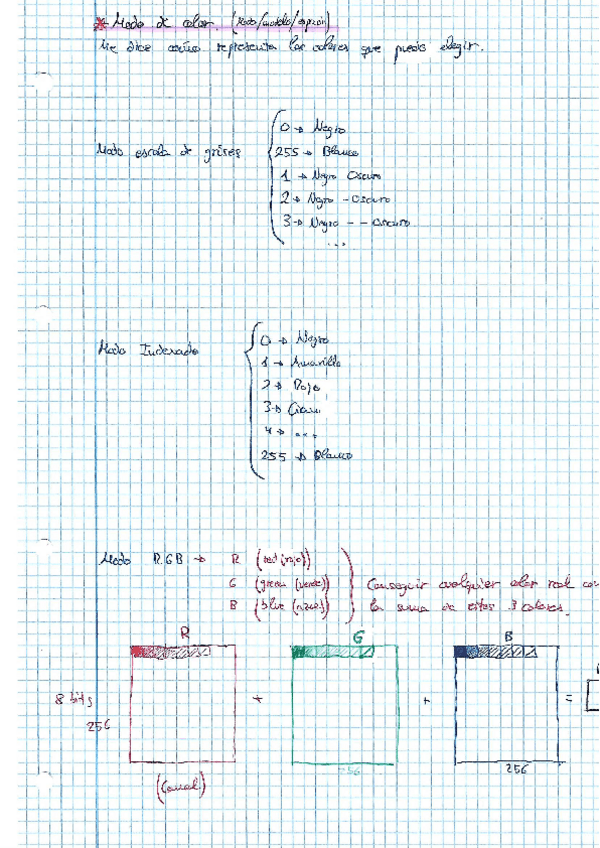 * Modo de color. (Modo/modelo/espacio)
Me dice como representa los colores que puedo elegir.
Modo escala de grises
0 → Negro
255 → Blanco
1 → Negro Oscuro
2 → Negro - Oscuro
3 → Negro - - Oscuro
...
Modo Indexado
0 → Negro
1 → Amarillo
2 → Rojo
3 → Cian
4 → ...
255 → Blanco
Modo RGB → R (red (rojo))
G (green (verde))
B (blue (azul))
Conseguir cualquier color real con
la suma de estos 3 colores.
R G B
8 bits + + =
256
256 256
(Canal)